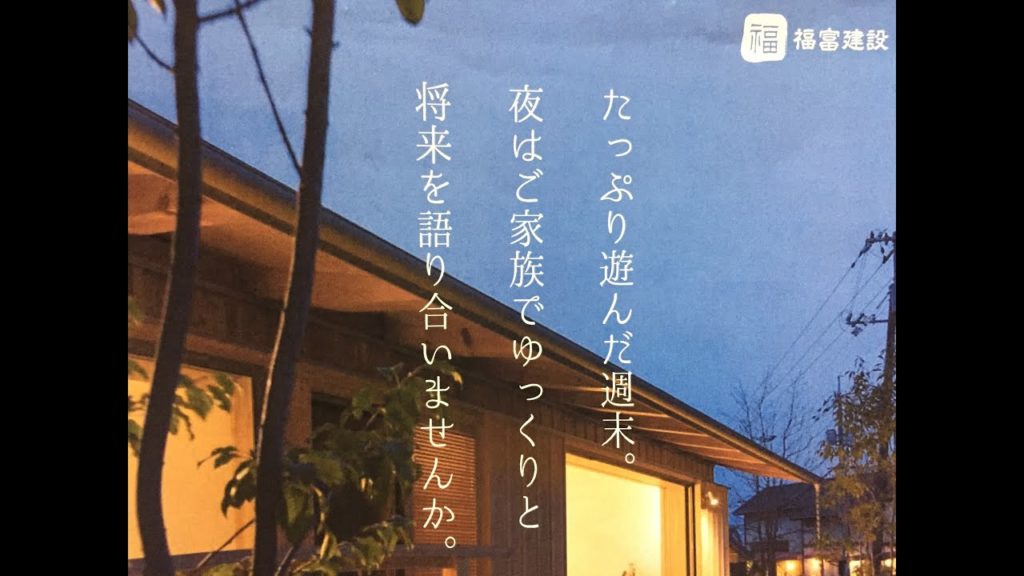 福 福富建設
たっぷり遊んだ週末。
夜はご家族でゆっくりと
将来を語り合いませんか。